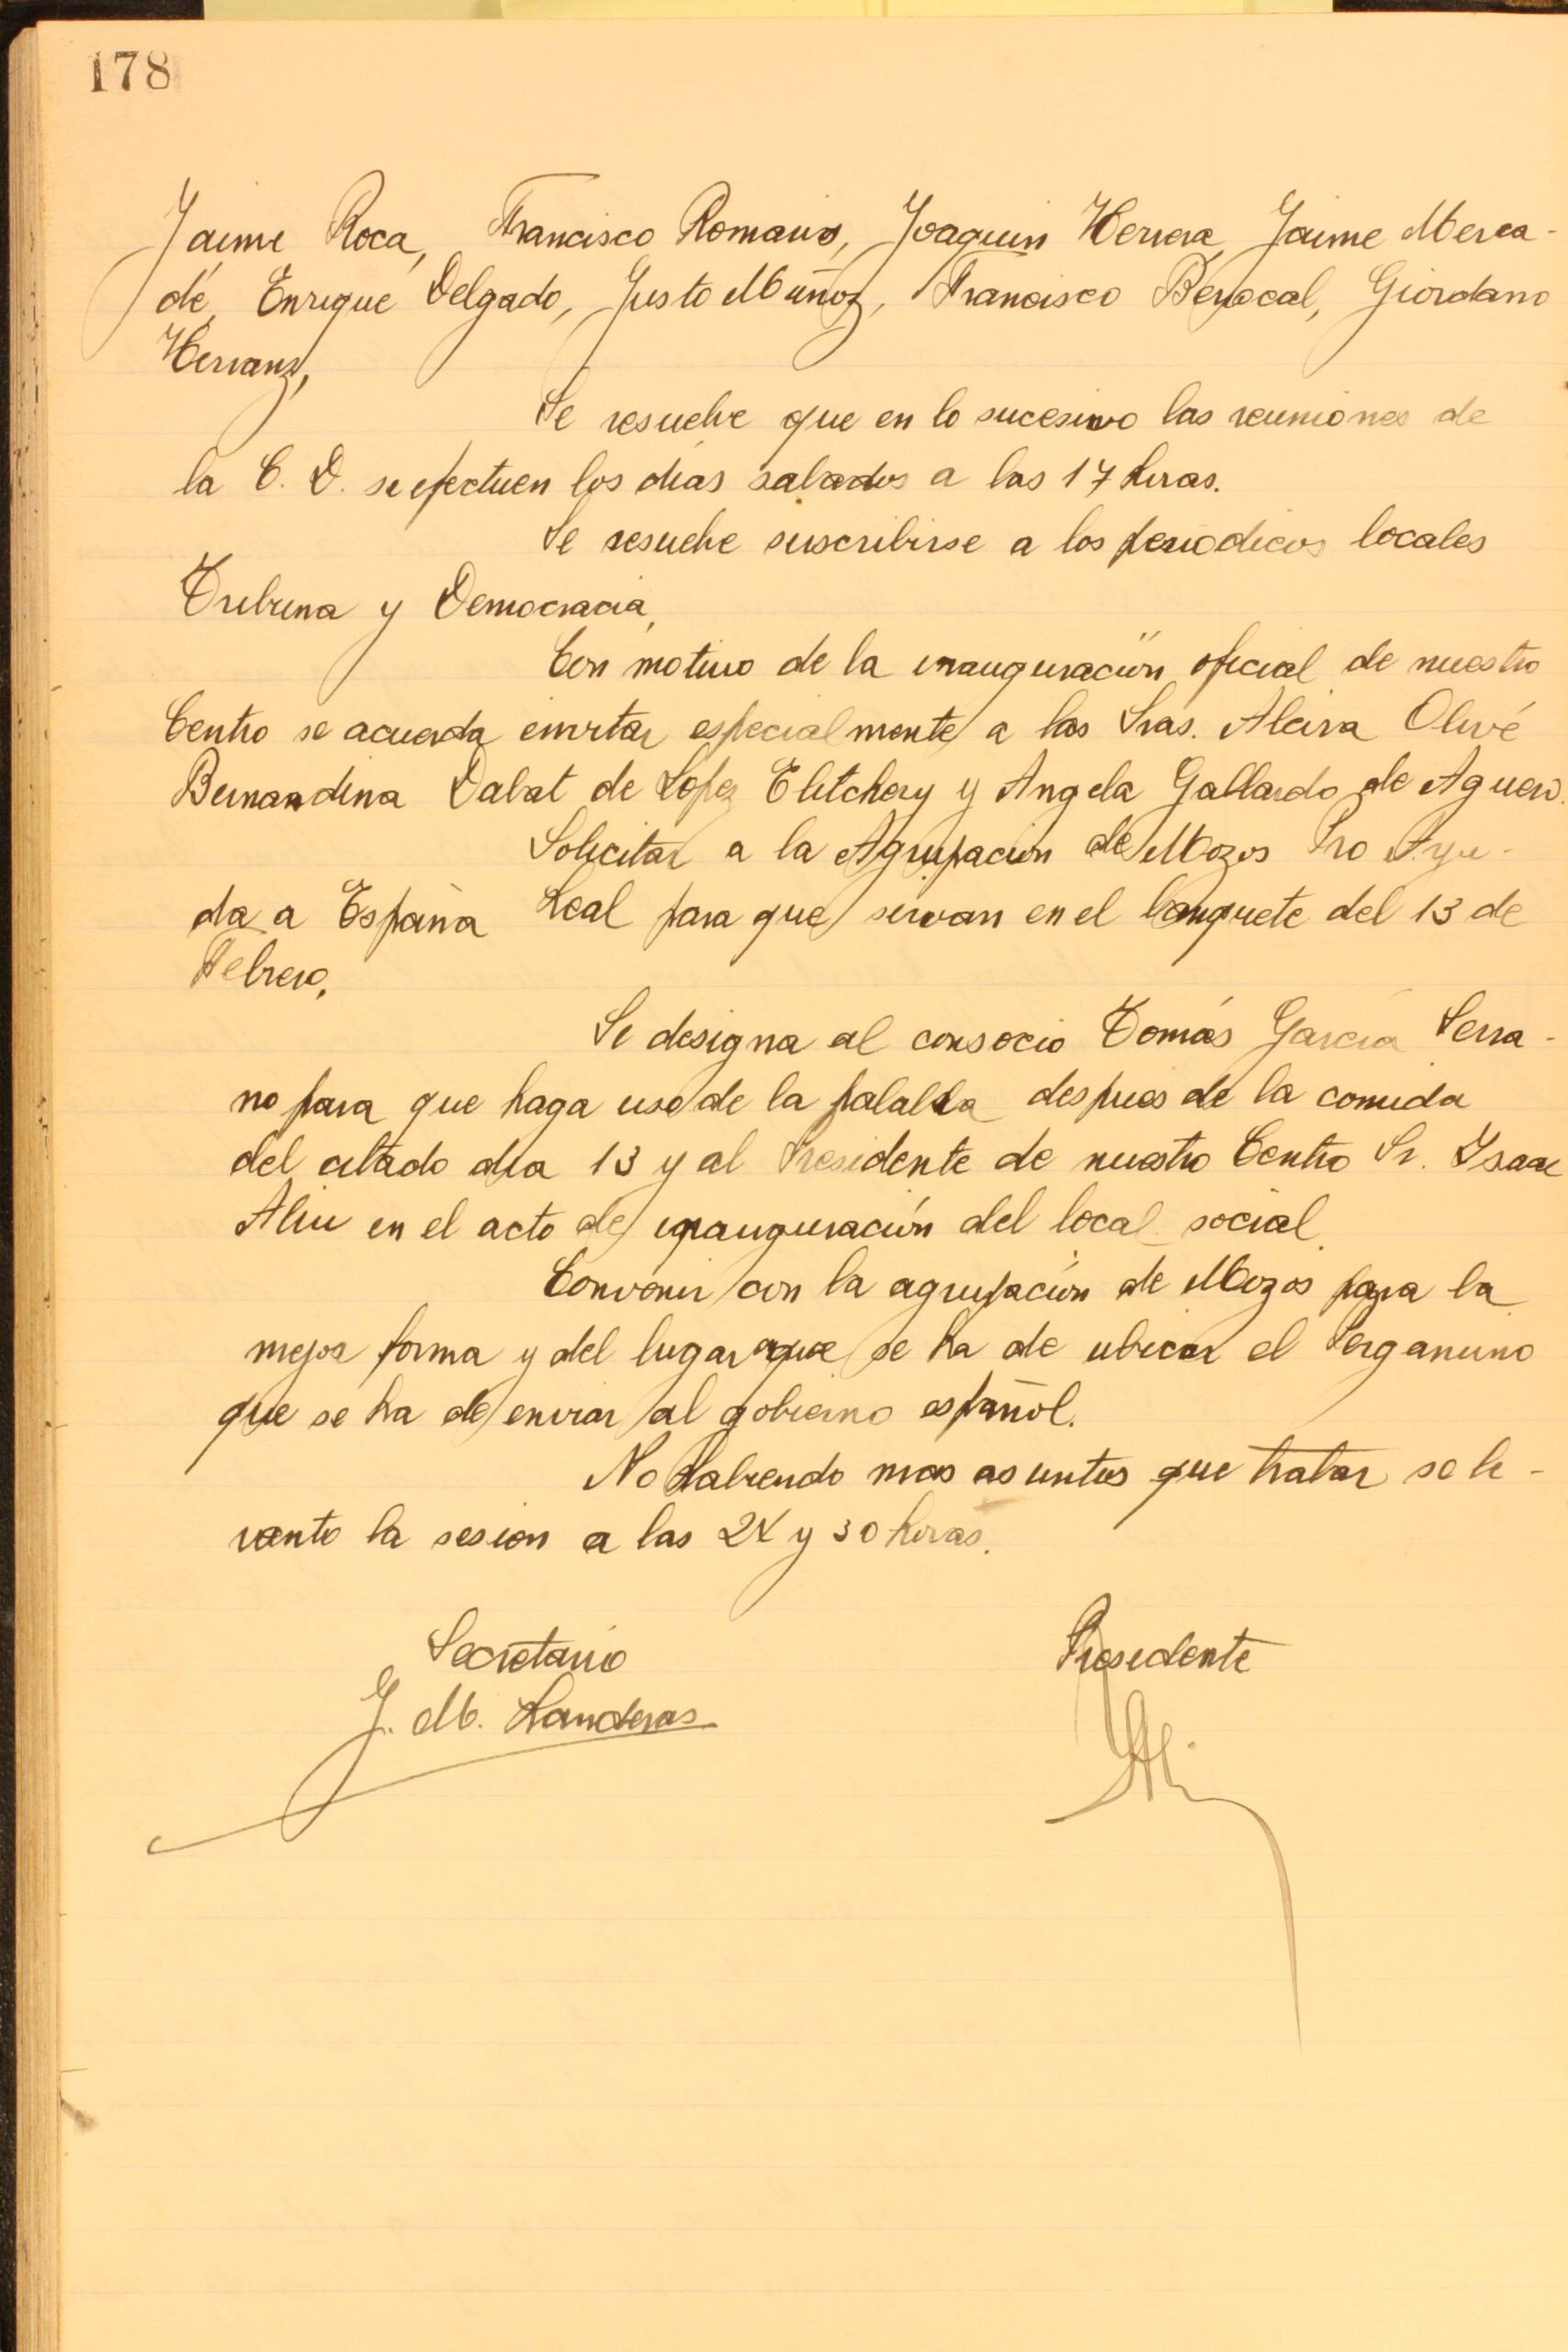 178
Jaime Roca, Francisco Romano, Joaquin Herrera, Jaime Merca-
dé, Enrique Delgado, Justo Muñoz, Francisco Berrocal, Giordano
Herranz,
Se resuelve que en lo sucesivo las reuniones de
la C. D. se efectuen los dias sabados a las 17 horas.
Se resuelve suscribirse a los periodicos locales
Tribuna y Democracia,
Con motivo de la inauguración oficial de nuestro
Centro se acuerda invitar especialmente a las Sras. Alcira Olivé
Bernardina Dabat de López Elitchery y Angela Gallardo de Aguero.
Solicitar a la Agrupación de Mozos Pro Ayu-
da a España Leal para que sirvan en el banquete del 13 de
Febrero,
Se designa al consocio Tomás García Serra-
no para que haga uso de la palabra despues de la comida
del citado dia 13 y al Presidente de nuestro Centro Sr. Isaac
Aliu en el acto de inauguración del local social.
Convenir con la agrupación de Mozos para la
mejor forma y del lugar que se ha de ubicar el Pergamino
que se ha de enviar al gobierno español.
No habiendo mas asuntos que tratar se le-
vanto la sesion a las 24 y 30 horas.
Secretario Presidente
J. M. Landeras